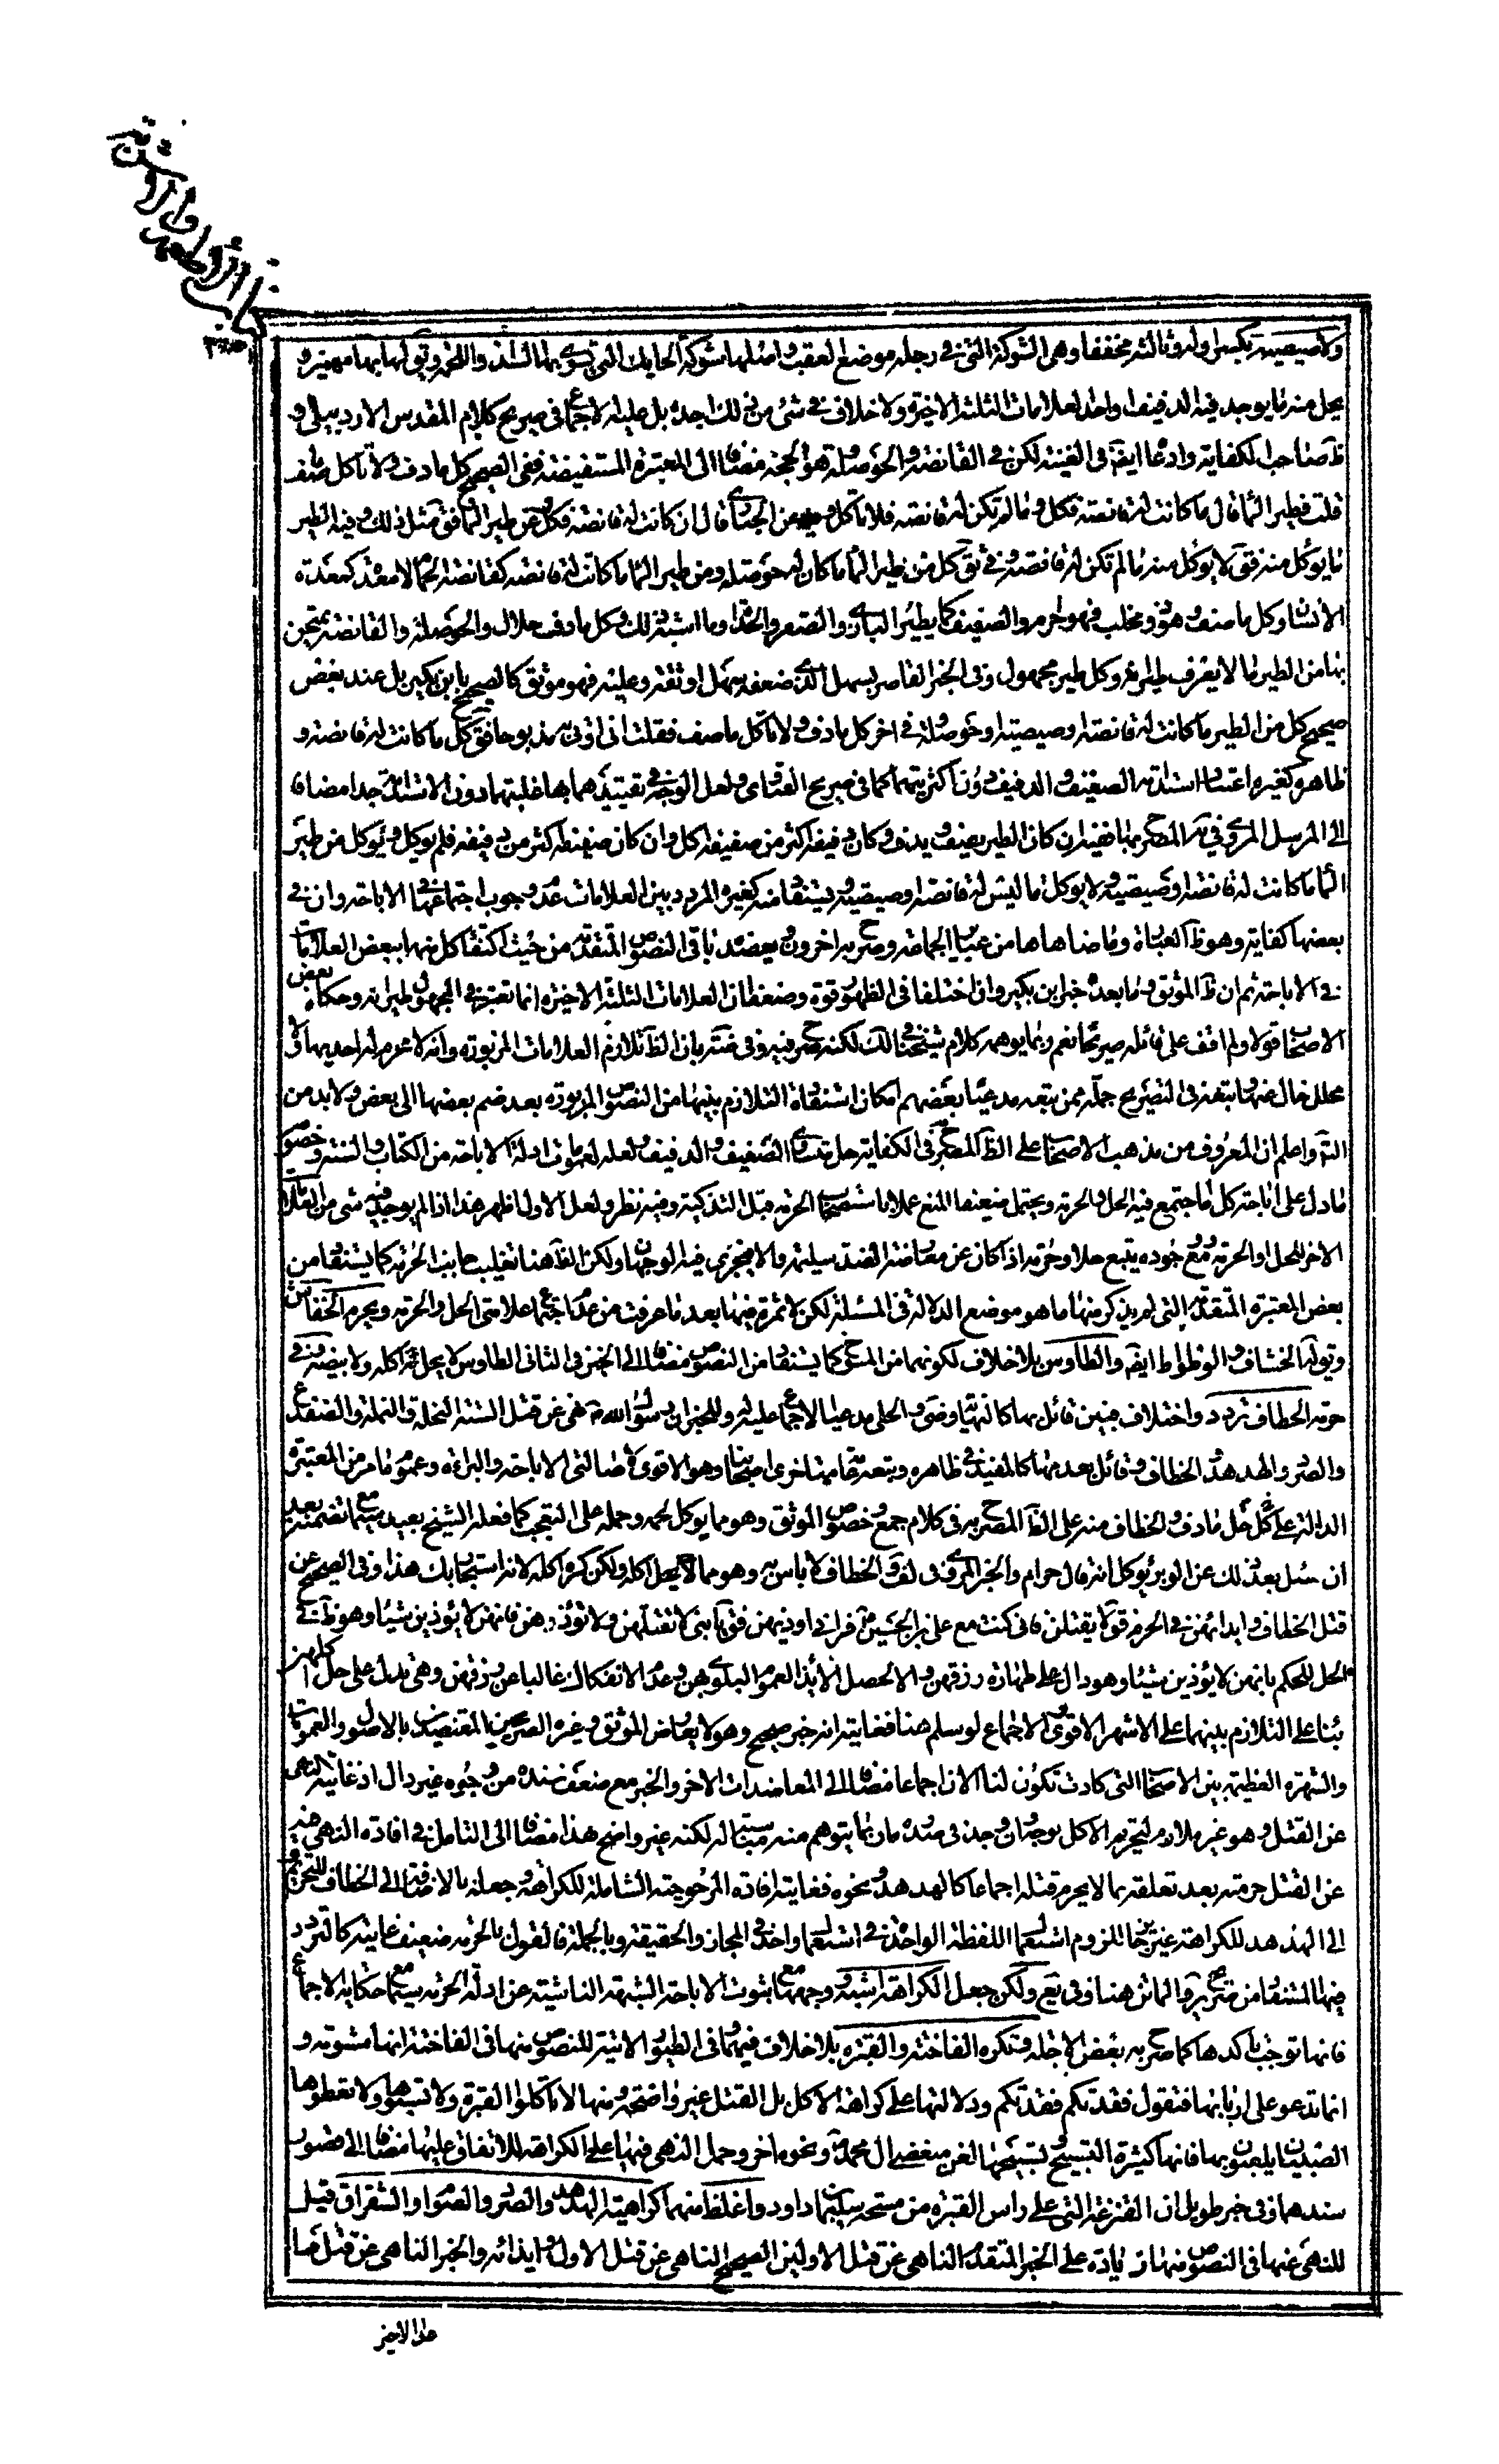 ولا صيصية بكسر اوله وثالثه مخففا وهى الشوكة التى فى رجله موضع العقب واصلها شوكة الحايك التى يسوى بها السداة واللحمة
يحل منه ما يوجد فيه الدفيف او احد العلامات الثلثة الاخيرة ولا خلاف فى شئ من ذلك اجده بل عليه الاجماع فى صريح كلام المقدس الاردبيلى و
صاحب الكفاية وادعاه ايضا فى الغنية لكن فى القانصة والحوصلة هو الحجة مضافا الى المعتبرة المستفيضة ففى الصحيح كل ما دف ولا تاكل ما صف
قلت فطير الماء قال ما كانت له قانصة فكل وما لم تكن له قانصة فلا تاكل وفيه عن قال ان كانت له قانصة فكل وعن طير الماء فق مثل ذلك وفيه الطير
ما يؤكل منه فق لا يؤكل منه ما لم تكن له قانصة وفى ثق كل من طير الماء ما كان له حوصلة ومن طير الماء ما كانت له قانصة كقانصة الحمام لا معدة كمعدة
الانسان وكل ما صف وهو ذو مخلب فهو حرام والصفيف كما يطير البازى والصقر والحداة وما اشبه ذلك وكل ما دف حلال والحوصلة والقانصة يمتحن
بها من الطير ما لا يعرف طيرانه وكل طير مجهول وفى الخبر القاصر بسهل الذى ضعفه سهل او ثقة وعليه فهو موثق كالصحيح بابن بكير بل عند بعض
صحيح كل من الطير ما كانت له قانصة او صيصية او حوصلة وفى اخر كل ما دف ولا تاكل ما صف فقلت انى اوتى به مذبوحا فق كل ما كانت له قانصة و
ظاهره كغيره اعتبار استدامة الصفيف والدفيف دون اكثريتهما كما فى صريح الفتاوى ولعل الوجه فى تقييدهما بها غلبتها دون الاستدامة جدا مضافا
الى المرسل المروى فى يه المصرح بها فيه ان كان الطير يصف ويدف وكان دفيفه اكثر من صفيفه اكل وان كان صفيفه اكثر من دفيفه فلم يوكل ويوكل من طير
الماء ما كانت له قانصة او صيصية ولا يوكل ما ليس له قانصة او صيصية ويستفاد منه كغيره المردد بين العلامات عدم وجوب اجتماعها فى الاباحة وان فى
بعضها كفاية وهو ظ العبارة وما ضاهاها من عبائر الجماعة وصرح به اخرون ويعضده باقى النصوص المتقدمة من حيث اكتفاء كل منها ببعض العلامات
فى الاباحة ثم ان ظ الموثق وما بعده خبر ابن بكير وان اختلفا فى الظهور قوة وضعفا ان العلامات الثلثة الاخيرة انما تعتبر فى المجهول طيرانه وحكاه بعض
الاصحاب قولا ولم اقف على قائله صريحا نعم ربما يوهمه كلام شيخنا فى لك لكنه صرح فيه وفى ضه بان الظ تلازم العلامات المزبورة وانه لا محرم له احديها ولا
محلل خال عنها وتبعه فى التصريح جملة ممن تبعه مدعيا بعضهم امكان استفادة التلازم بينها من النصوص المزبورة بعد ضم بعضها الى بعض ولا بد من
التم واعلم ان المعروف من مذهب الاصحاب على الظ المصرح به فى الكفاية حل تساوى الصفيف والدفيف ولعله لعمومات ادلة الاباحة من الكتاب والسنة وخصوص
ما دل على اباحة كل ما اجتمع فيه الحل والحرمة ويحتمل ضعيفا المنع عملا باستصحاب الحرمة قبل التذكية وفيه نظر ولعل الاول اظهر هذا اذا لم يوجد فيه شئ من العلامات
الاخر للحل او الحرمة ومع وجوده يتبع حلا وحرمة اذا كان عن معارضة الضد سليمة والا فيجرى فيه الوجهان ولكن الظ هنا تغليب جانب الحرمة كما يستفاد من
بعض المعتبرة المتقدمة التى لم يذكر منها ما هو موضع الدلالة فى المسئلة لكن لا ثمرة فيها بعد ما عرفت من عدم اجتماع علامتى الحل والحرمة ويحرم الخفاش
ويق له الخشاف والوطواط ايضا والطاوس بلا خلاف لكونهما من المسوخ كما يستفاد من النصوص مضافا الى الخبر فى الثانى الطاوس لا يحل اكله ولا بيضه وفى
حرمة الخطاف تردد واختلاف فبين قائل بها كالنهاية والقاضى والحلى مدعيا الاجماع عليه وللخبر ان رسول الله ص نهى عن قتل الستة النحلة والنملة والضفدع
والصرد والهدهد والخطاف وقائل بعدمها كالمفيد فى ظاهره وتبعه عامة متاخرى اصحابنا وهو الاقوى لاصالتى الاباحة والبرائة وعموم ما مر من المعتبرة
الدالة على حل كل ما دف والخطاف منه على الظ المصرح به فى كلام جمع وخصوص الموثق وهو مما يوكل لحمه وحمله على التعجب كما فعله الشيخ بعيد سيما مع تضمنه بعد
ان سئل بعد ذلك عن الوبر يوكل انه قال حرام والخبر المروى فى لف والخطاف لا باس به وهو مما لا يحل اكله ولكن كره اكله لانه استجار بك هذا وفى الصحيح عن
قتل الخطاف او ايذائهن فى الحرم فق لا يقتلن فانى كنت مع على بن الحسين ع فرانى اوذيهن فق يا بنى لا تقتلهن ولا تؤذهن فانهن لا يؤذين شيئا وهو ظ فى
الحل للحكم بانهن لا يؤذين شيئا وهو دال على طهارة زرقهن والا لحصل الايذاء لعموم البلوى بهن وعدم الانفكاك غالبا عن زرقهن وهى تدل على حل اكلهن
بناء على التلازم بينهما على الاشهر الاقوى والاجماع لو سلم هنا فغايته انه خبر صحيح وهو لا يعارض الموثق وغيره الصريحين المعتضدين بالاصول والعمومات
والشهرة العظيمة بين الاصحاب التى كادت تكون لنا الان اجماعا مضافا الى المعاضدات الاخر والخبر مع ضعف سنده من وجوه غير دال اذ غايته النهى
عن القتل وهو غير ملازم لتحريم الاكل بوجه وان وجد فى صدره مما ربما يتوهم منه مناسبته له لكنه غير واضح هذا مضافا الى التامل فى افادة النهى فيه
عن القتل حرمته بعد تعلقه بما لا يحرم قتله اجماعا كالهدهد ونحوه فغايته افادة المرجوحية الشاملة للكراهة وجعله بالاضافة الى الخطاف للتحريم
الى الهدهد للكراهة غير جائز للزوم استعمال اللفظة الواحدة فى استعمال واحد فى المجاز والحقيقة وبالجملة فالقول بالحرمة ضعيف غايته كالتردد
فيها المستفاد من ير والماتن هنا وفى يع ولكن جعل الكراهة اشبه ووجهه مع ثبوت الاباحة الشبهة الناشئة عن ادلة الحرمة سيما مع حكاية الاجماع
فانها توجب تاكدها كما صرح به بعض الاجلة وتكره الفاختة والقبرة بلا خلاف فيهما وفى الطيور الاتية للنصوص منها فى الفاختة انها مشومة و
انما تدعو على اربابها فتقول فقدتكم فقدتكم ودلالتها على كراهة الاكل بل القتل غير واضحة ومنها لا تاكلوا القبرة ولا تسبوها ولا تعطوها
الصبيان يلعبون بها فانها كثيرة التسبيح وتسبيحها لعن مبغضى ال محمد ونحوه اخر وحمل النهى فيها على الكراهة للاتفاق عليها مضافا الى قصور
سندهما وفى خبر طويل ان القنزعة التى على راس القبرة من مسحة سليمان بن داود واغلظ منهما كراهية الهدهد والصرد والصوام والشقراق قيل
للنهى عنها فى النصوص منها زيادة على الخبر المتقدم الناهى عن قتل الاولين الصحيح الناهى عن قتل الاول وايذائه والخبر الناهى عن قتل ما